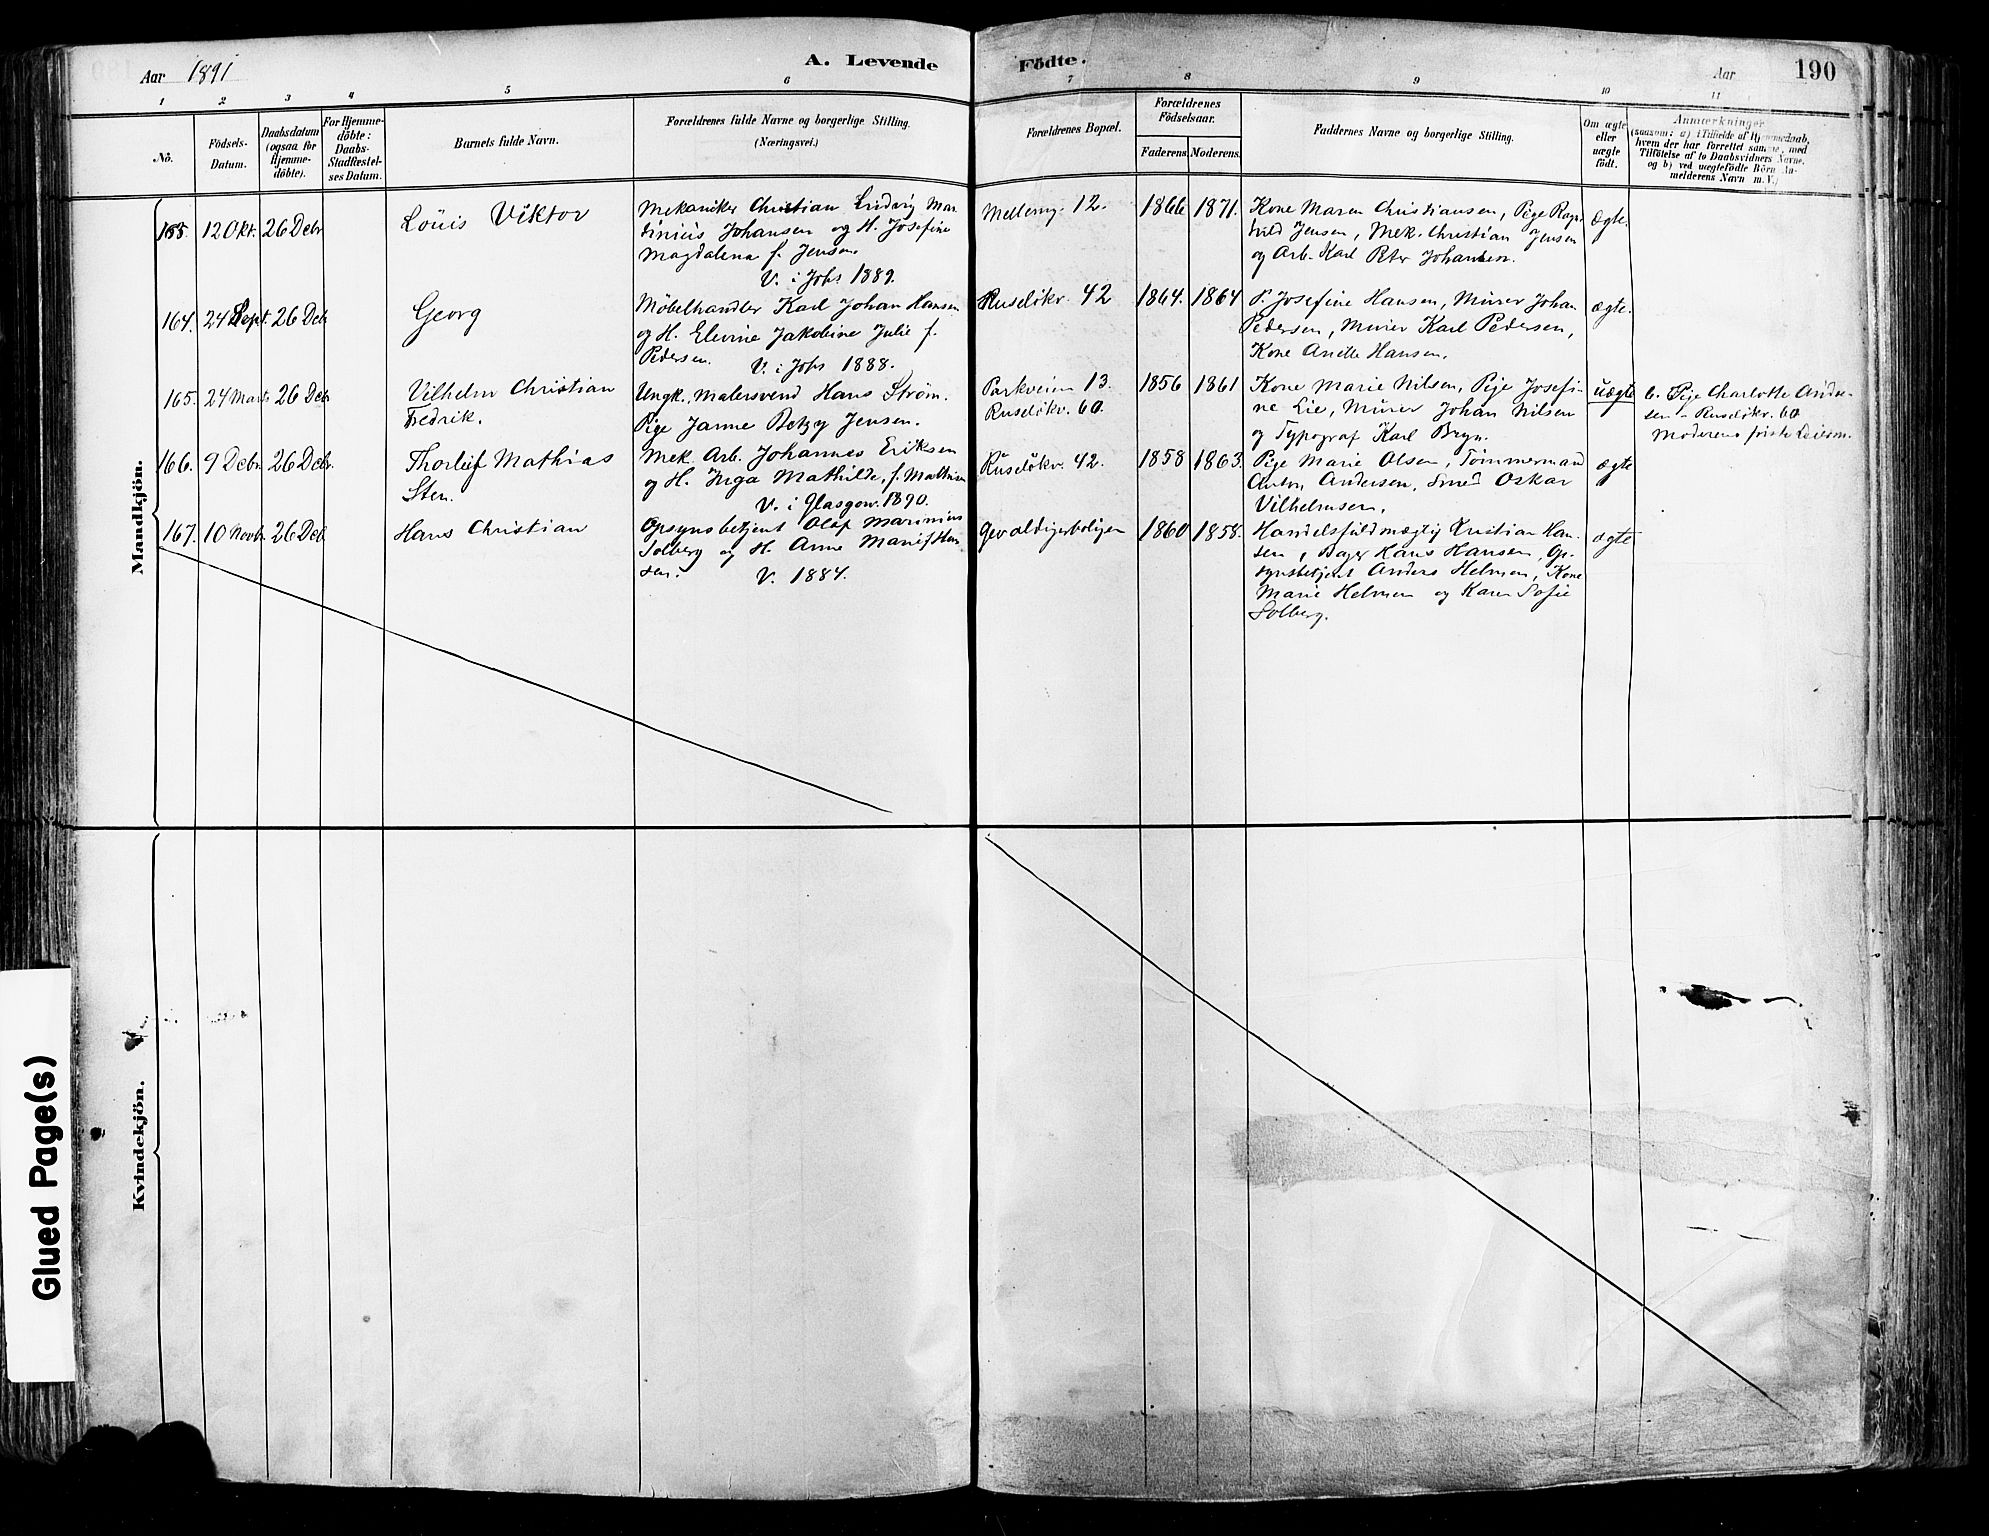 Aar 1891
A. Levende
Födte.
Aar
190
1 2 3 4 5 6 7 8 9 10 11
No.
Födsels-
Datum.
Daabsdatum
(ogsaa for
Hjemme-
döbte).
For Hjemme-
döbte:
Daabs-
Stadfæstel-
ses Datum.
Barnets fulde Navn.
Forældrenes fulde Navne og borgerlige Stilling.
(Næringsvei.)
Forældrenes Bopæl.
Forældrenes
Födselsaar.
Faderens.
Moderens.
Faddernes Navne og borgerlige Stilling.
Om ægte
eller
uægte
født.
Anmærkninger
(saasom: a) i Tilfælde af Hjemmedaab,
hvem der har forrettet samme, med
Tilföielse af to Daabsvidners Navne,
og b) ved uægtefödte Börn An-
melderens Navn m. V.)
Mandkjön.
12 Okt. 26 Debr
Louis Viktor
Mekaniker Christian Ludvig Mar
tinius Johansen og H. Josefine
Magdalena f. Jensen.
V. i Johs 1889.
Mellemv. 12.
1866 1871.
Kone Maren Christiansen, Pige Ragn
hild Jensen, Mek. Christian Jensen
og Arb. Karl Peter Johansen.
ægte.
164. 24 Sept. 26 Deb
Georg
Møbelhandler Karl Johan Hansen
og H. Elevine Jakobine Julie f.
Pedersen. V. i Johs 1888.
Ruseløkv. 42
1864. 1864
P. Josefine Hansen, Murer Johan
Pedersen, Murer Karl Pedersen,
Kone Anette Hansen.
ægte.
165. 24 Marts 26 Deb
Vilhelm Christian
Fredrik.
Ungk. Malersvend Hans Strøm.
Pige Janne Betzy Jensen.
Parkveien 13.
Ruseløkv. 60.
1856 1861
Kone Marie Nilsen, Pige Josefi-
ne Lie, Murer Johan Nilsen
og Typograf Karl Bryn.
uægte
b. Pige Charlotte Ander-
sen - Ruseløkv. 60
Moderens første Leierm.
166. 9 Debr. 26 Debr.
Thorleif Mathias
Sten.
Mek. Arb. Johannes Eriksen
og H. Inga Mathilde, f. Mathisen
V. i Glasgow. 1890.
Ruseløkv. 42.
1858 1863.
Pige Marie Olsen, Tømmermand
Anton Andersen, Smed Oskar
Vilhelmsen.
ægte
167. 10 Novb. 26 Deb
Hans Christian
Opsynsbetjent Olaf Marinius
Solberg og H. Anne Marie f. Han
sen. V. 1884.
Gevaldigerboligen
1860 1858.
Handelsfuldmægtig Kristian Han-
sen, Bager Hans Hansen, Op-
synsbetjent Anders Helmen, Kone
Marie Helmen og Karen Sofie
Solberg.
ægte
Kvindekjön.
Glued Page(s)